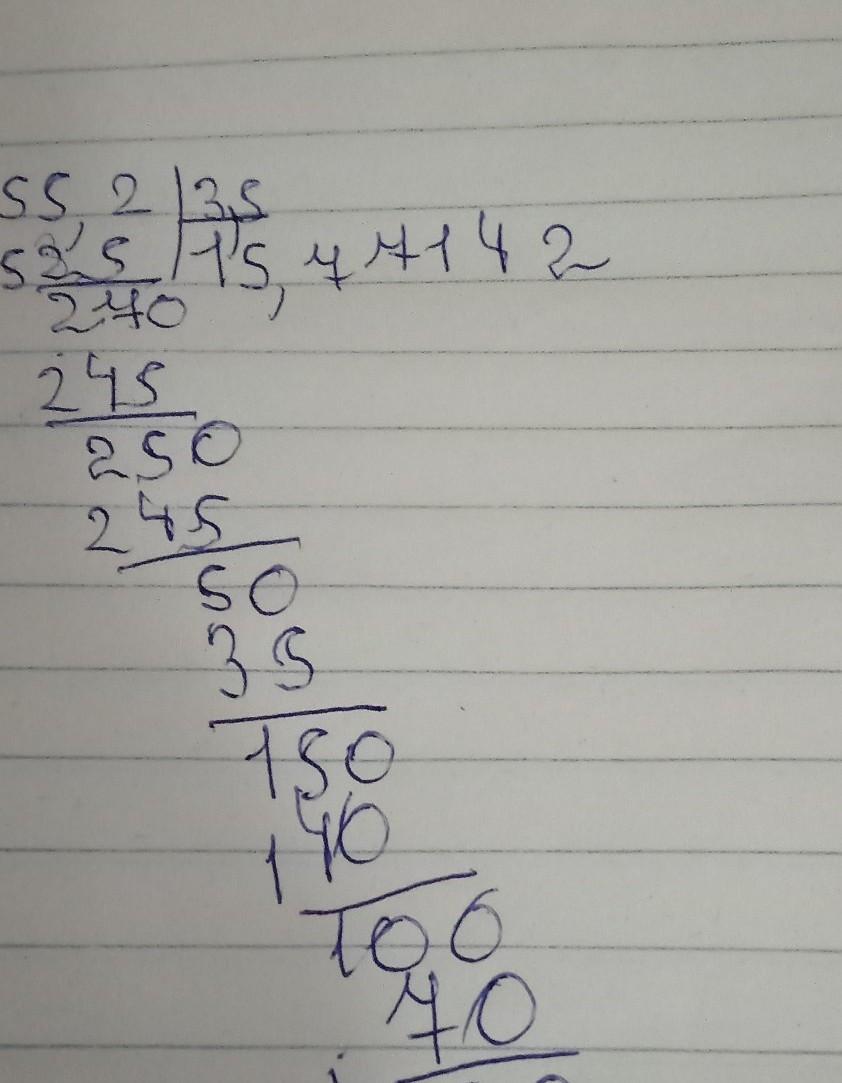 55,2 | 3,5
52,5 | 15,77142
270
245
250
245
50
35
150
140
100
70